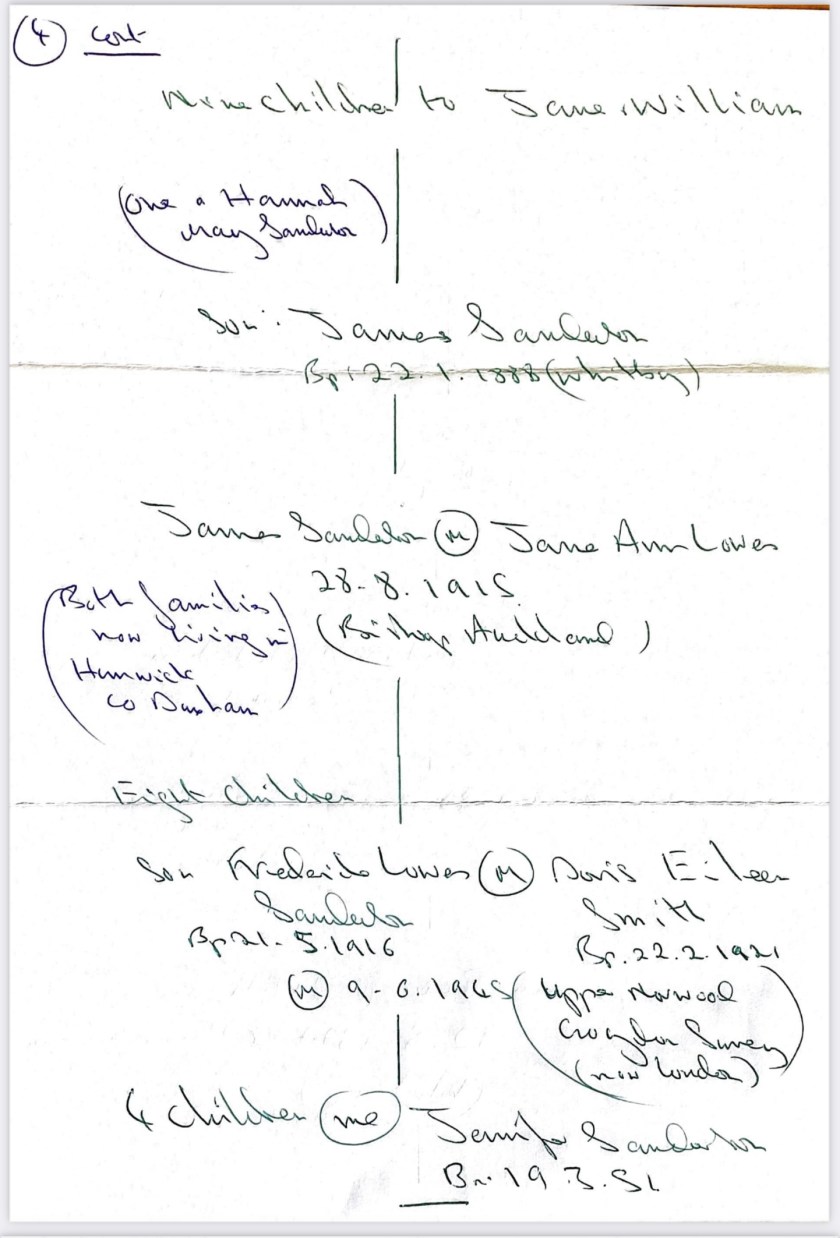 4 cont
Nine children to Jane & William
(One a Hannah
May Sanderson)
Son: James Sanderson
Bp: 22.1.1888 (Whitby)
James Sanderson (m) Jane Ann Lowes
28.8.1915
(Bishop Auckland)
(Both families
now living in
Hunwick
Co Durham)
Eight children
Son Frederick Lowes (m) Doris Eileen
Sanderson Smith
Bp 21.5.1916 Bp. 22.2.1921
(m) 9-6.1945 (Upper Norwood
Croydon Surrey
(now London))
4 children (me) Jennifer Sanderson
19.3.51